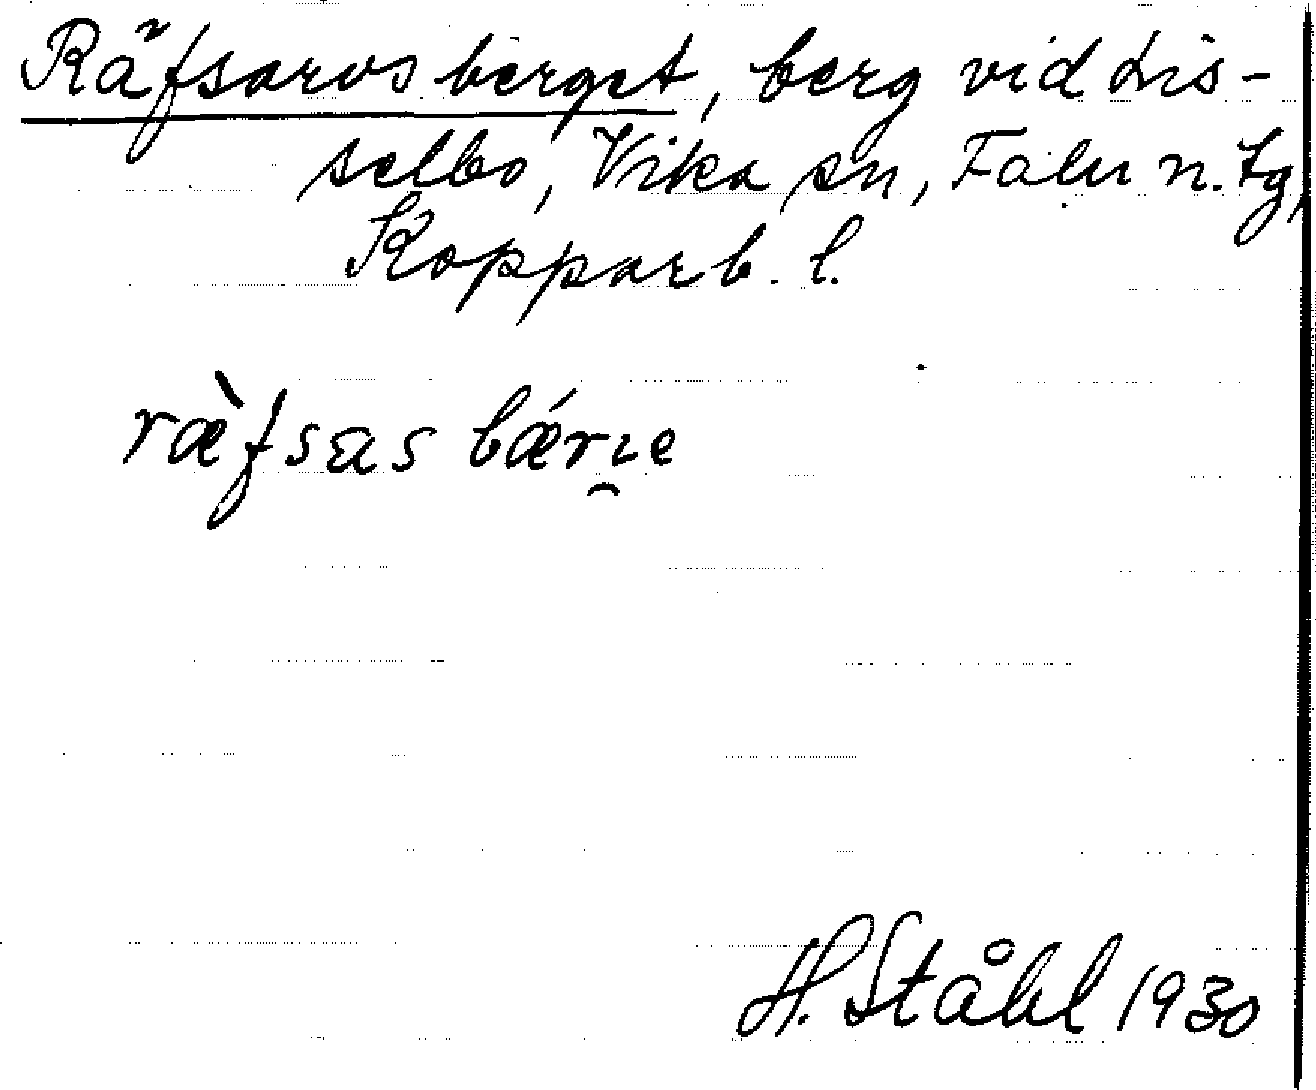 Räfsarvsberget, berg vid Lis-
selbo, Vika sn, Falu n. tg,
Kopparb. l.
ræ̀fsas bǽrɪe
H. Ståhl 1930